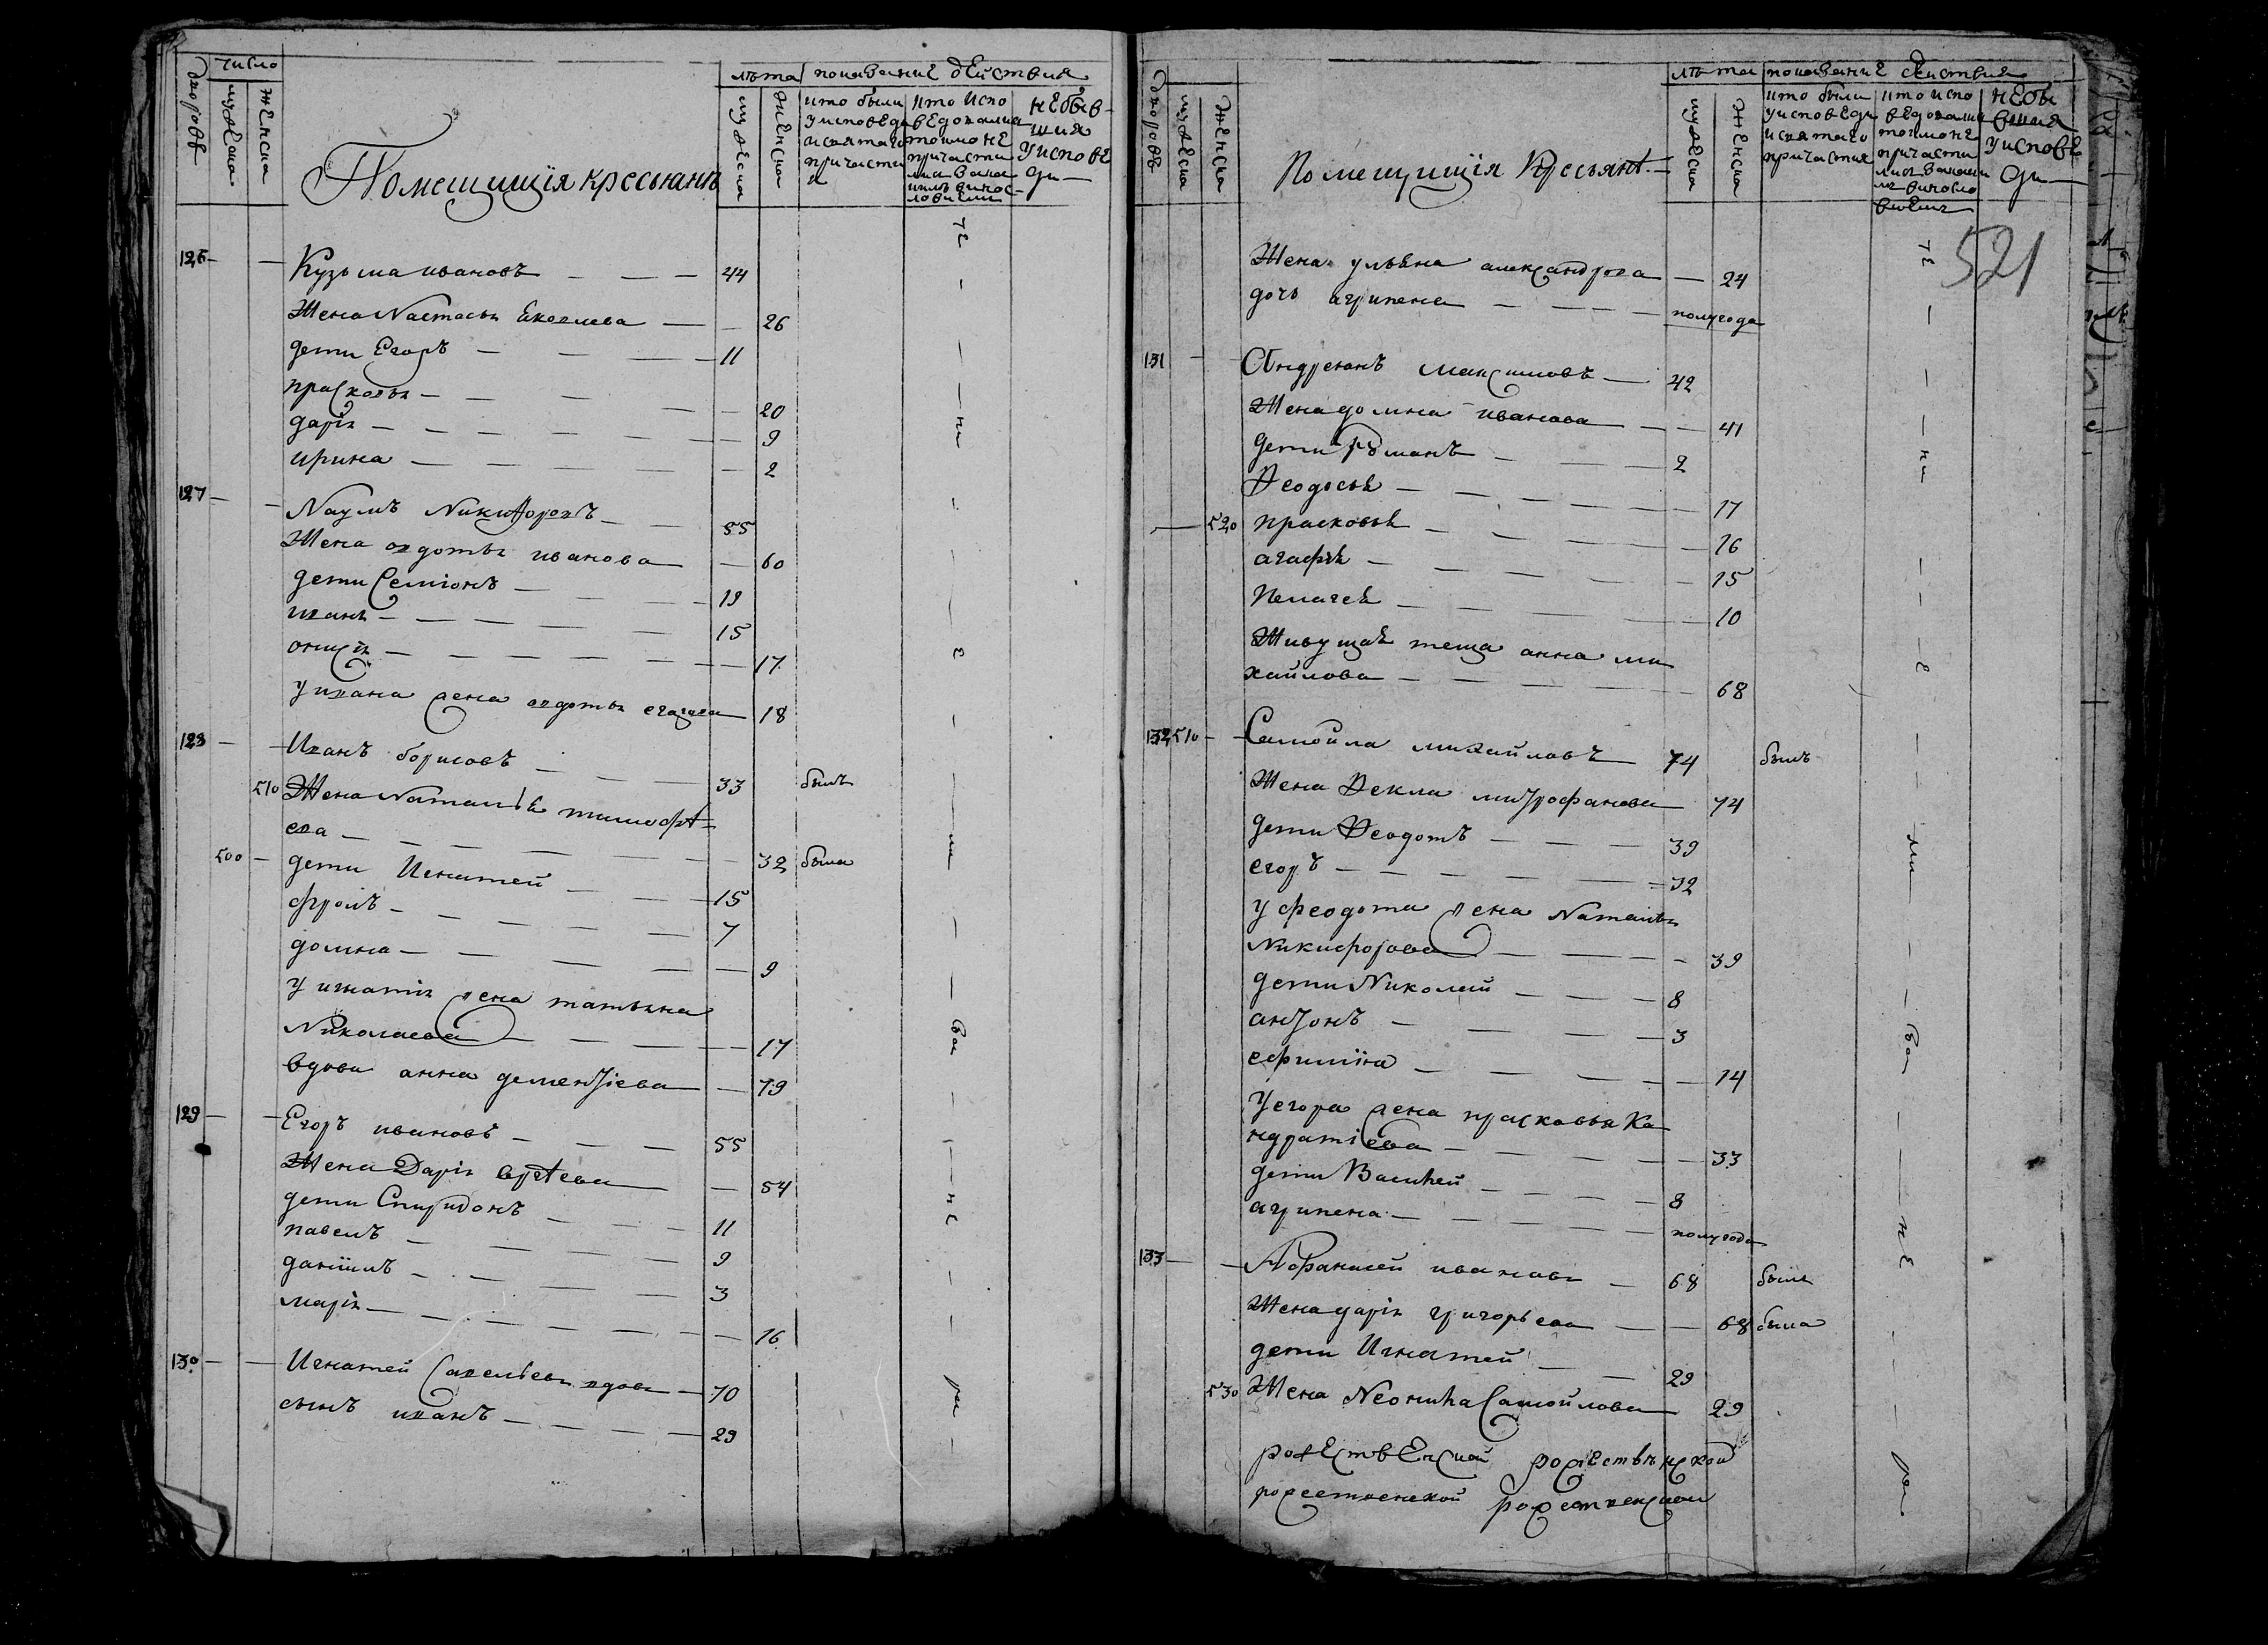 число
лѣта показание действия
дворовъ
мужеска
женска
Помещицкiя кресьянъ
мужеска
женска
кто были у исповеди и святаго причастия
кто испо
ведовались
токмо не
причасти
небыв-
шия
у испове
ди
126 Кузьма ивановъ 44
Жена Настасья Яковлева 26
дети Егоръ 11
прасковья 20
дарiя 9
ирина 2
127 Наумъ Никифоровъ 55
Жена авдотья иванова 60
дети Семiонъ 19
иванъ 15
18
128 Иванъ борисовъ 33 былъ
510 Жена Наталья тимофѣ=
ева 32 была
500 дети Игнатей 15
фролъ 7
домна 9
у игнатiя жена татьяна
Николаева 17
вдова анна дементiева 79
129 Егоръ ивановъ 55
Жена Дарiя 54
дети Спиридонъ 11
павелъ 9
данiилъ 3
марiя 16
130 Игнатей Савельевъ вдовъ 70
сынъ иванъ 29
лѣта показание действия
дворовъ
мужеска
женска
Помещицкiя Кресьянъ
мужеска
женска
кто были у исповеди и святаго причастия
кто испо
ведовались
токмо не
причасти
небы
вшия
у испове
ди
521
Жена ульяна александрова 24
дочь агрипена полугода
131 Андреянъ Максимовъ 42
Жена домна иванова 41
дети Романъ 2
Феодосья 17
520 прасковья 16
агафья 15
Пелагея 10
Живущая теща анна ми
хайлова 68
132 510 Самойла михайловъ 74 былъ
Жена Фекла митрофанова 74
дети Феодотъ 39
егоръ 32
у феодота жена Наталья
Никифорова 39
дети Николай 8
антонъ 3
ефимiя 14
У егора жена прасковья Ко
ндратiева 33
дети Василей 8
агрипена полугода
133 Афанасей ивановъ 68 былъ
Жена дарiя григорьева 68 была
дети Игнатей 29
530 Жена Неонила Самойлова 29
рожественской рожественской
рожественской рожественской